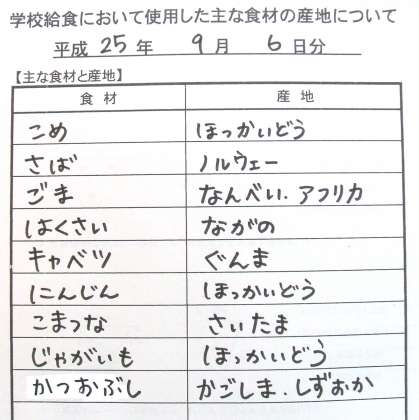 学校給食において使用した主な食材の産地について
平成 25 年 9 月 6 日分
【主な食材と産地】
食材 産地
こめ ほっかいどう
さば ノルウェー
ごま なんべい.アフリカ
はくさい ながの
キャベツ ぐんま
にんじん ほっかいどう
こまつな さいたま
じゃがいも ほっかいどう
かつおぶし かごしま.しずおか